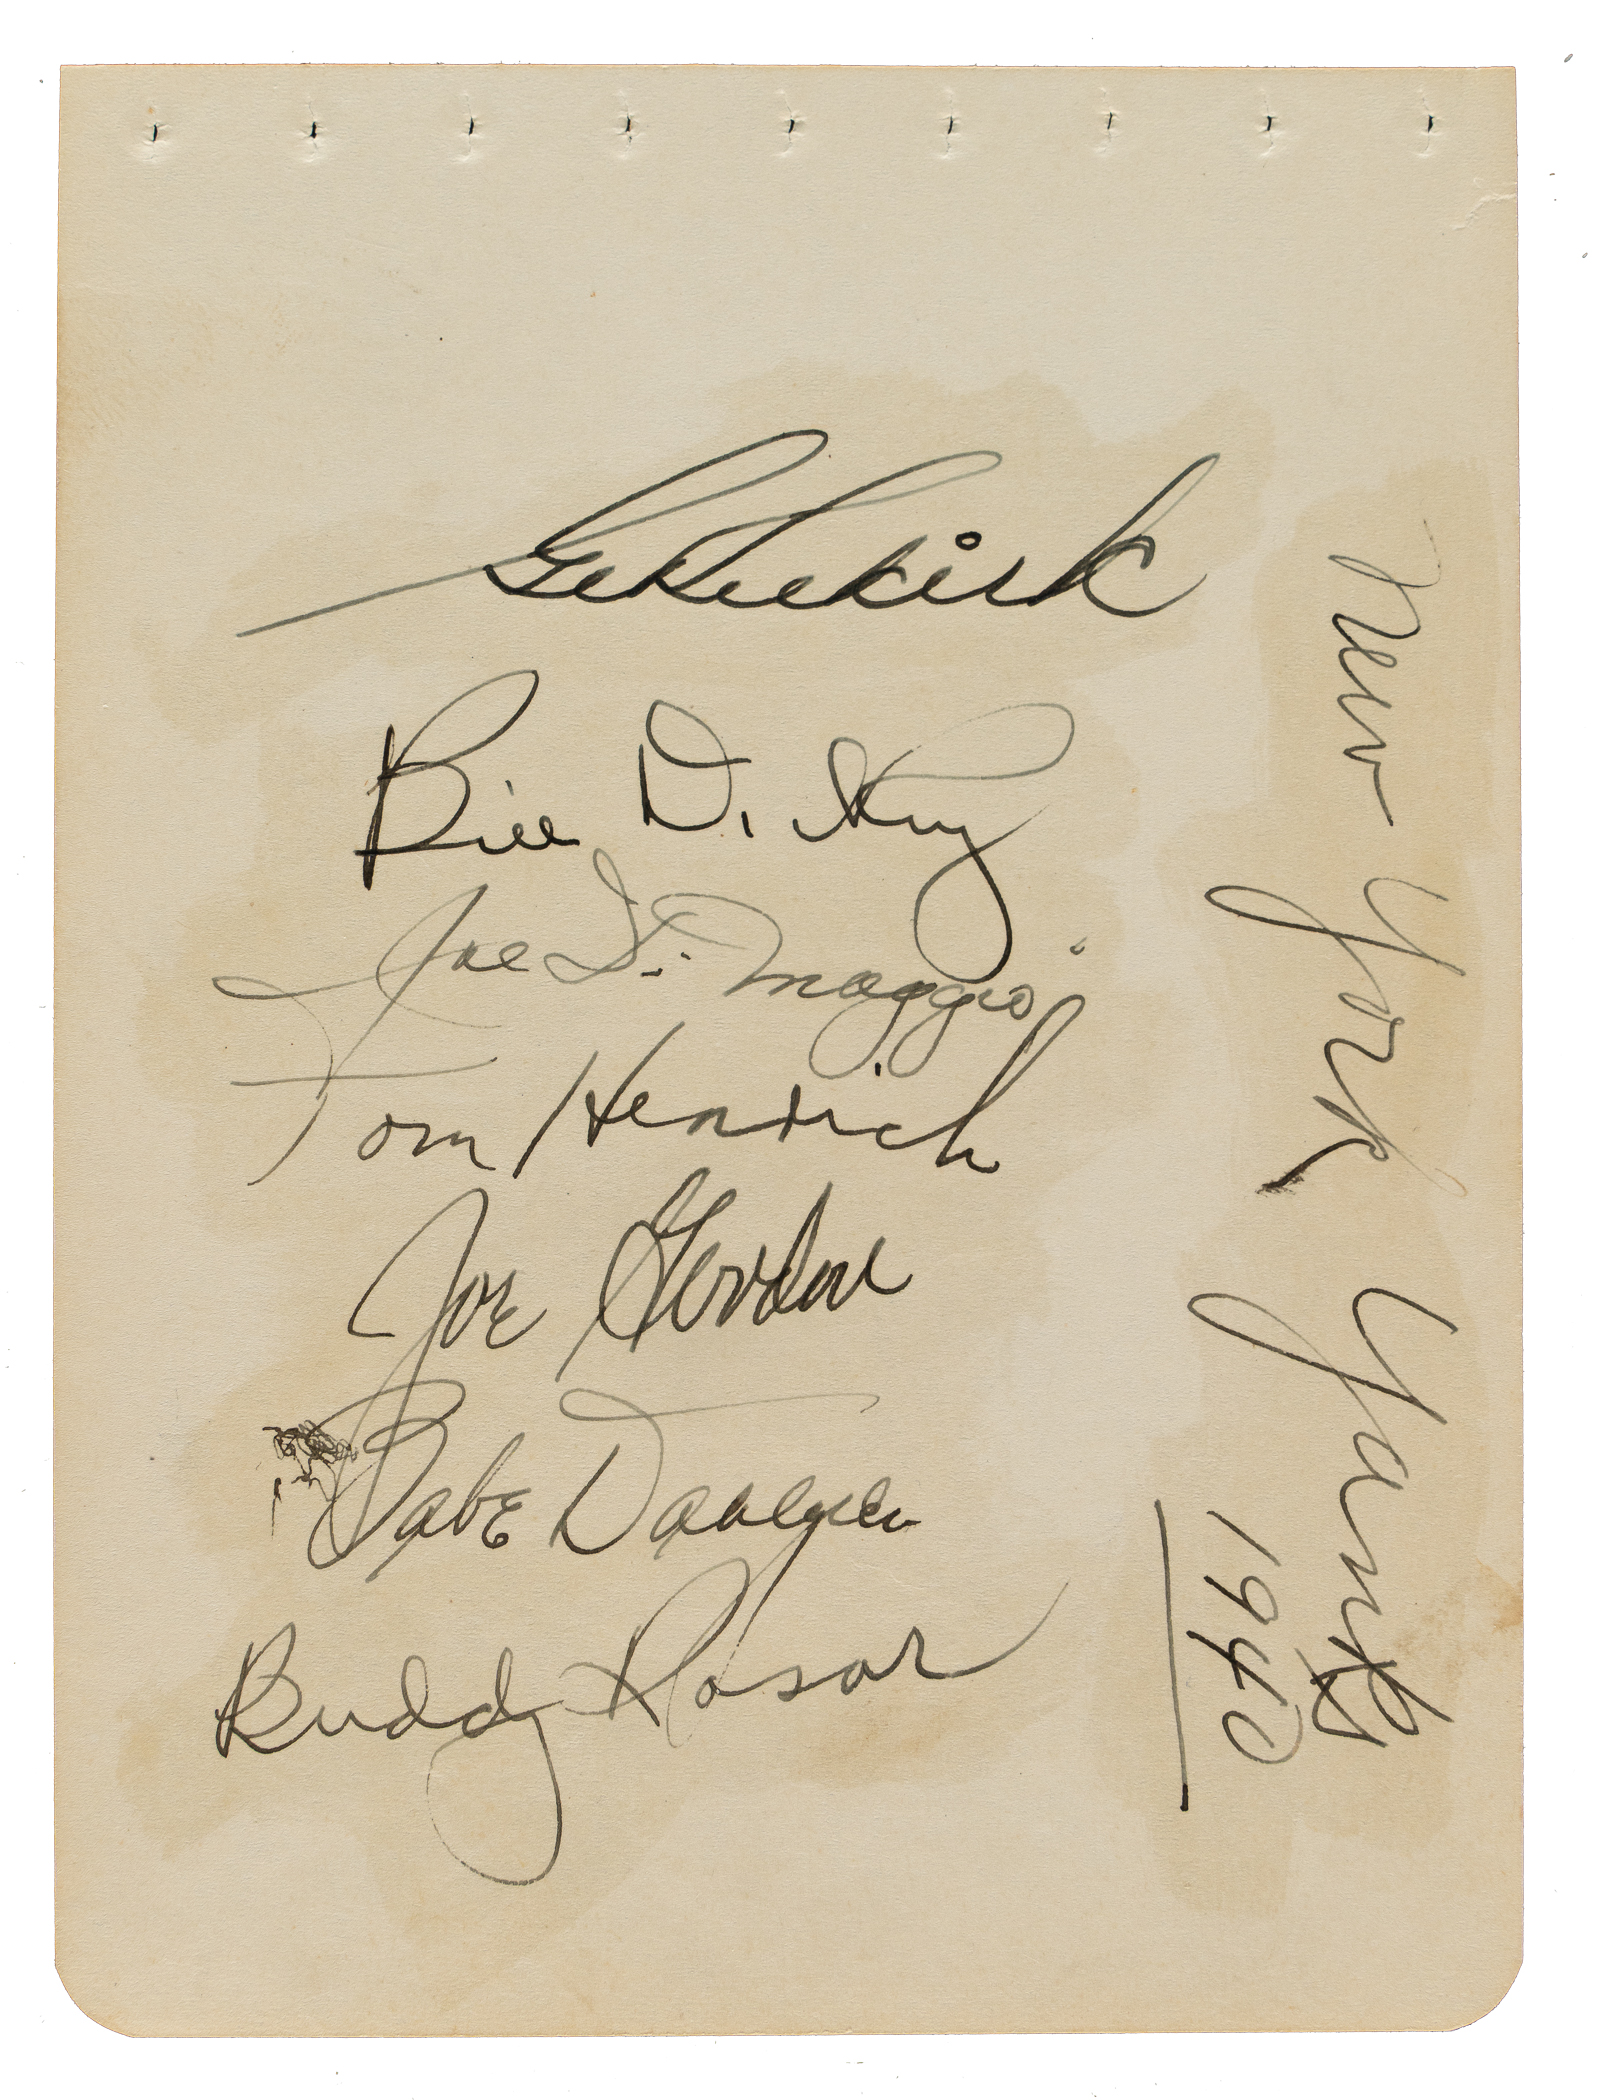 GSelkirk
Bill Dickey
Joe Di Maggio
Tom Henrich
Joe Gordon
Babe Dahlgren
Buddy Rosar
New York Yanks
1940